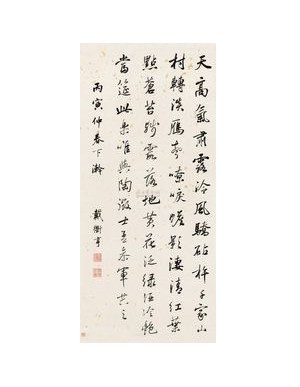 天高氣肅露冷風驕砧杵千家山
村轉淡雁聲嘹唳蟾影淒清紅葉
點蒼苔殘露落地黃花泛綠酒冷艷
當筵此景唯與陶徵士孟參軍共之
丙寅仲春下澣
戴衢亨